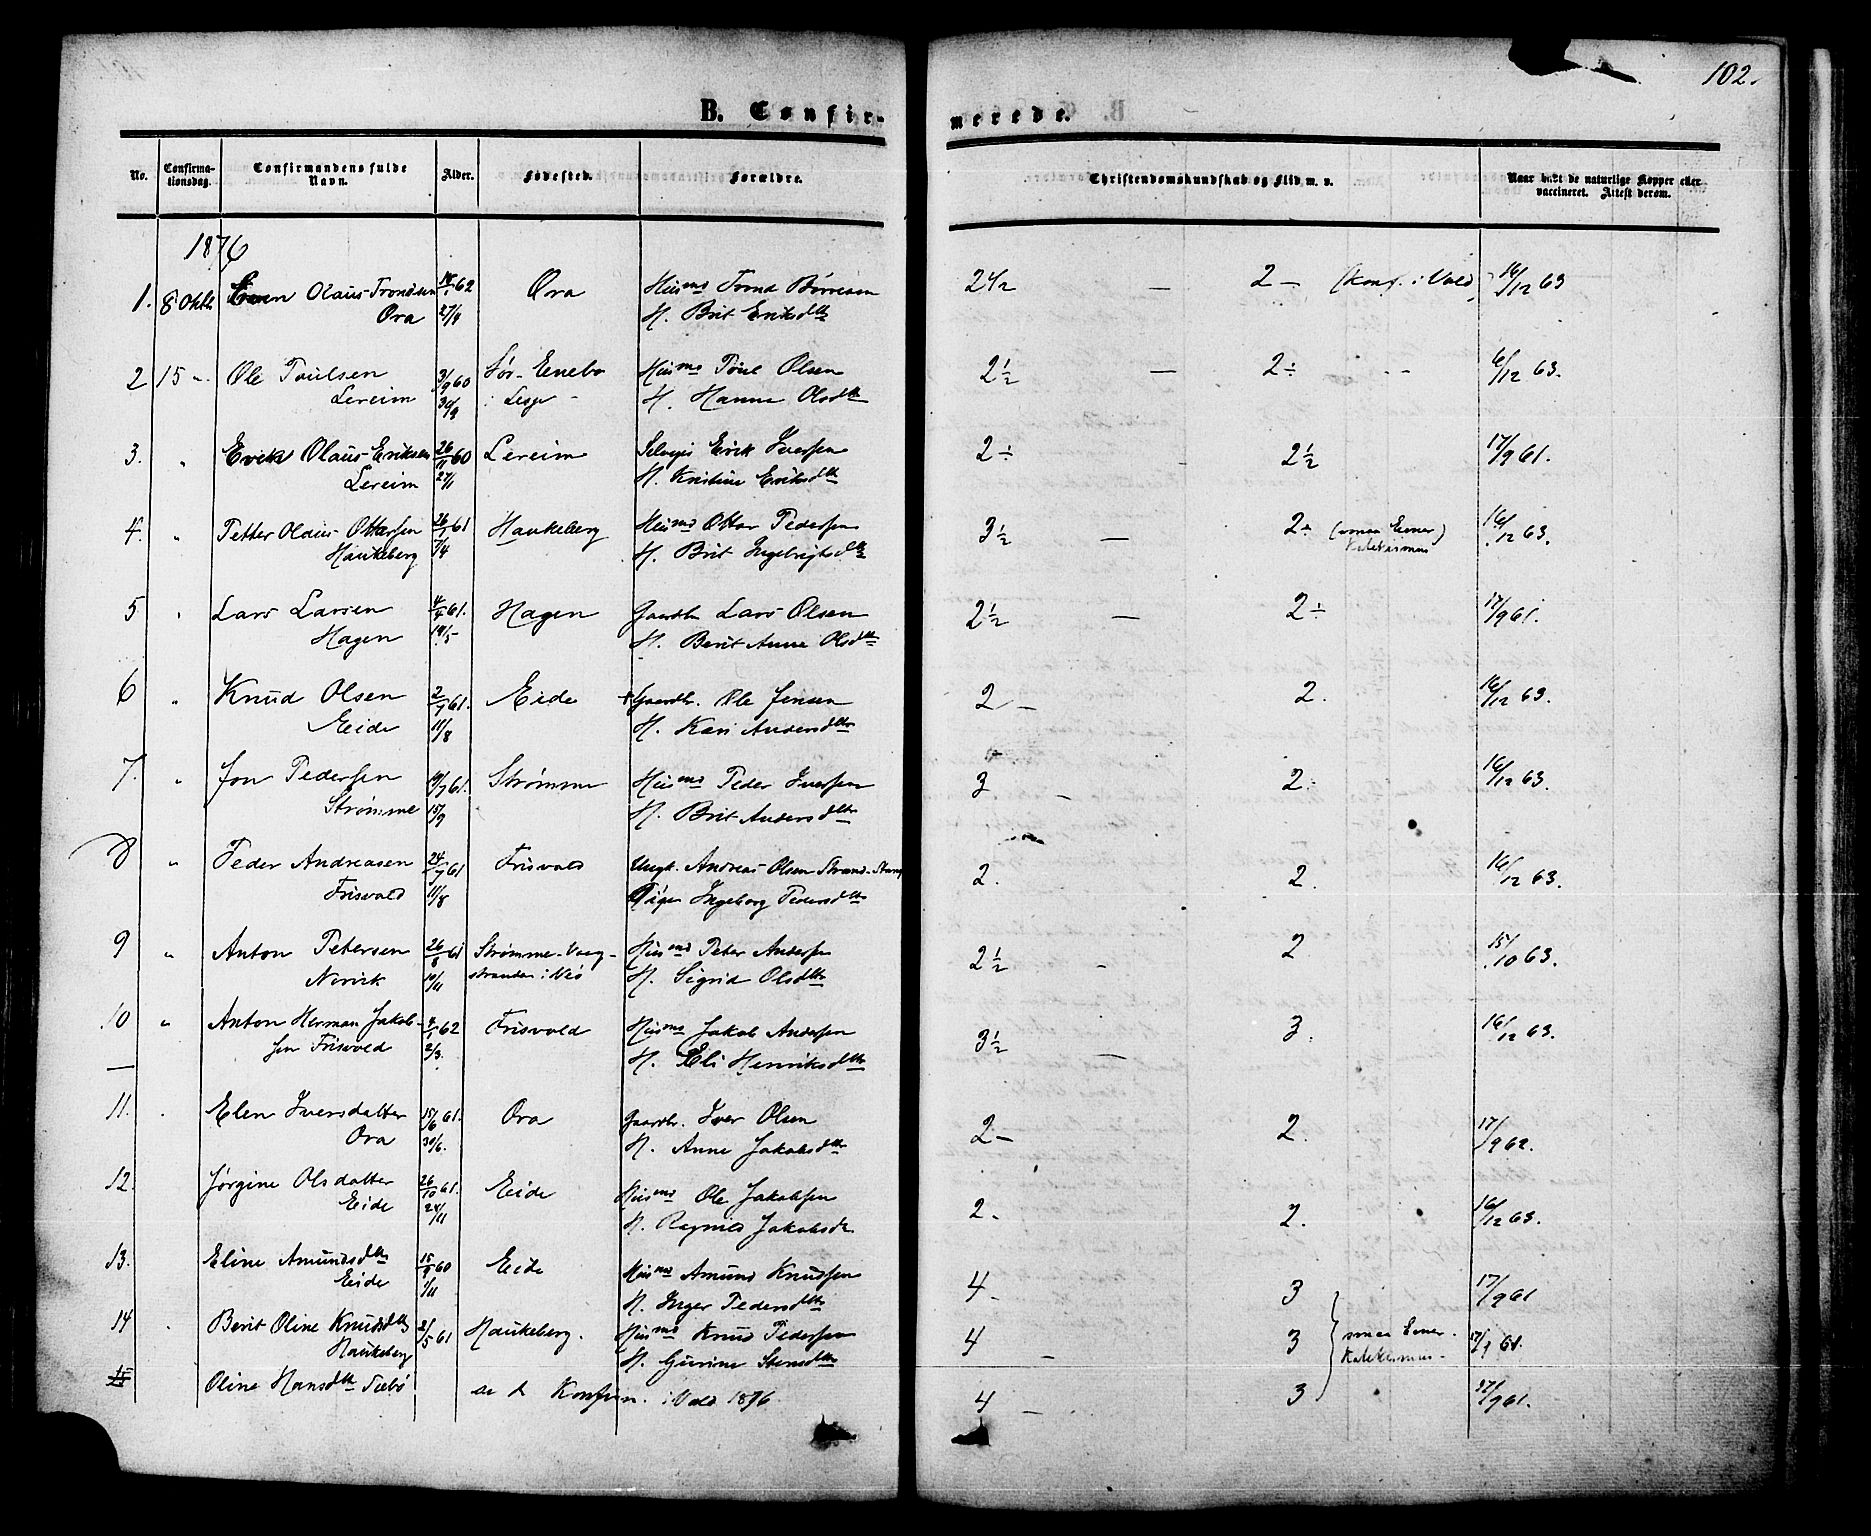 102.
B. Confir-
merede.
No.
Confirma-
tionsdag.
Confirmandens fulde
Navn.
Alder.
Fødested.
Forældre.
Christendomskundskab og Flid m. v.
Naar havt de naturlige Kopper eller
vaccineret. Attest derom.
1876
1. 8 Oktb. Olaus Trondsen 62 Ora 2 1/2 — 2 — (konf. i Vold) 16/12 63
Ora 27/4 H. Brit Eriksdtr
2 15 " Ole Paulsen 3/9 60 Sør-Enebo Husmd Poul Olsen 2 1/2 — 2 ÷ 16/12 63.
Lereim 30/9 H. Hanne Olsdtr
3. " Erik Olaus Eriksen 26/11 60 Lereim Selvejr Erik Iversen 2 ÷ 2 1/2 17/9 61.
Lereim 27/11 H. Kristine Eriksdtr
4. " Petter Olaus Ottersen 26/1 61 Haukeberg Husmd Otter Pedersen 3 1/2 — 2 ÷ 16/12 63.
Haukeberg 7/4 H. Brit Ingebrigtsdtr Katekismus
5 " Lars Larsen 4/4 61. Hagen Gaardbr Lars Olsen 2 1/2 — 2 ÷ 17/9 61.
Hagen 19/5 H. Berit Anne Olsdtr
6 " Knud Olsen 2/7 61. Eide + Gaardbr. Ole Jensen 2 — 2. 16/12 63.
Eide 11/8 H. Kari Andersdtr
7. " Jon Pedersen 19/7 61. Strømme Husmd Peder Iversen 3 — 2 ÷ 16/12 63.
Strømme 15/9 H. Brit Andersdtr
8 " Peder Andreasen 24/7 61 Frisvold Ungk. Andreas Olsen Strand 2. 2. 16/12 63.
Frisvold 11/8 Pige Ingeborg Pedersdtr
9 " Anton Petersen 26/8 61 Strømme-Vaag- Husmd Peter Andersen 2 1/2 — 2 15/10 63.
Nervik 10/11 stranden i Nes H. Sigrid Olsdtr
10 " Anton Herman Jakob- 4/1 62 Frisvold Husmd Jakob Andersen 3 1/2 — 3. 16/12 63.
sen Frisvold 2/3. H. Eli Henriksdtr
11. " Elen Iversdatter 15/6 61. Ora Gaardbr. Iver Olsen 2 — 2. 17/9 62.
Ora 30/6. H. Anne Jakobsdtr
12. Jørgine Olsdatter 26/10 61. Eide Husmd Ole Jakobsen 2. 2. 16/12 63.
Eide 24/11 H. Ragnild Jakobsdr.
13. Eline Amundsdtr 15/9 60 Eide Husmd Amund Knudsen 4 — 3 17/9 61
Eide 1/11 H. Inger Pedersdtr
14 " Berit Oline Knudsdtr 21/5 61 Haukeberg. Husmd Knud Pedersen 4 — 3 17/9 61.
Haukeberg H. Gurine Stensdtr Katekismus
15 Oline Hansdtr Sæbø Konfirm. i Vold 1876. 4 — 3 17/9 61.